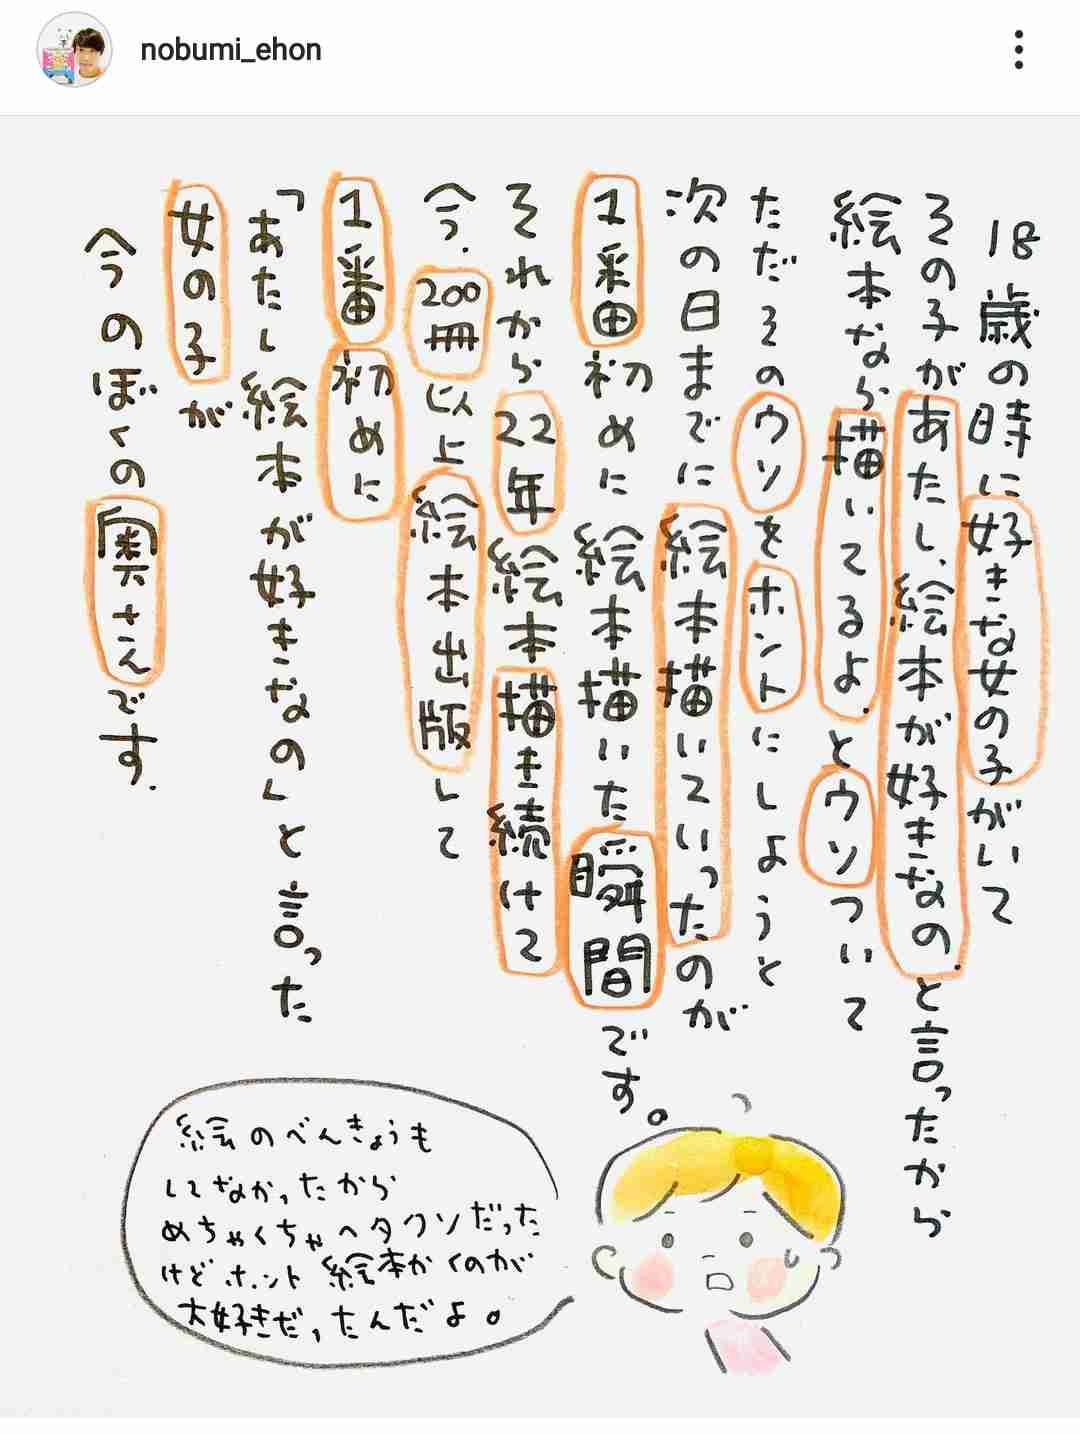 nobumi_ehon
18歳の時に好きな女の子がいて
その子があたし、絵本が好きなの.と言ったから
絵本なら描いてるよ.とウソついて
ただそのウソをホントにしようと
次の日までに絵本描いていったのが
1番初めに絵本描いた瞬間です。
それから22年絵本描き続けて
今.200冊以上絵本出版して
1番初めに
「あたし絵本が好きなの」と言った
女の子が
今のぼくの奥さんです.
絵のべんきょうも
してなかったから
めちゃくちゃヘタクソだった
けどホント絵本かくのが
大好きだったんだよ。